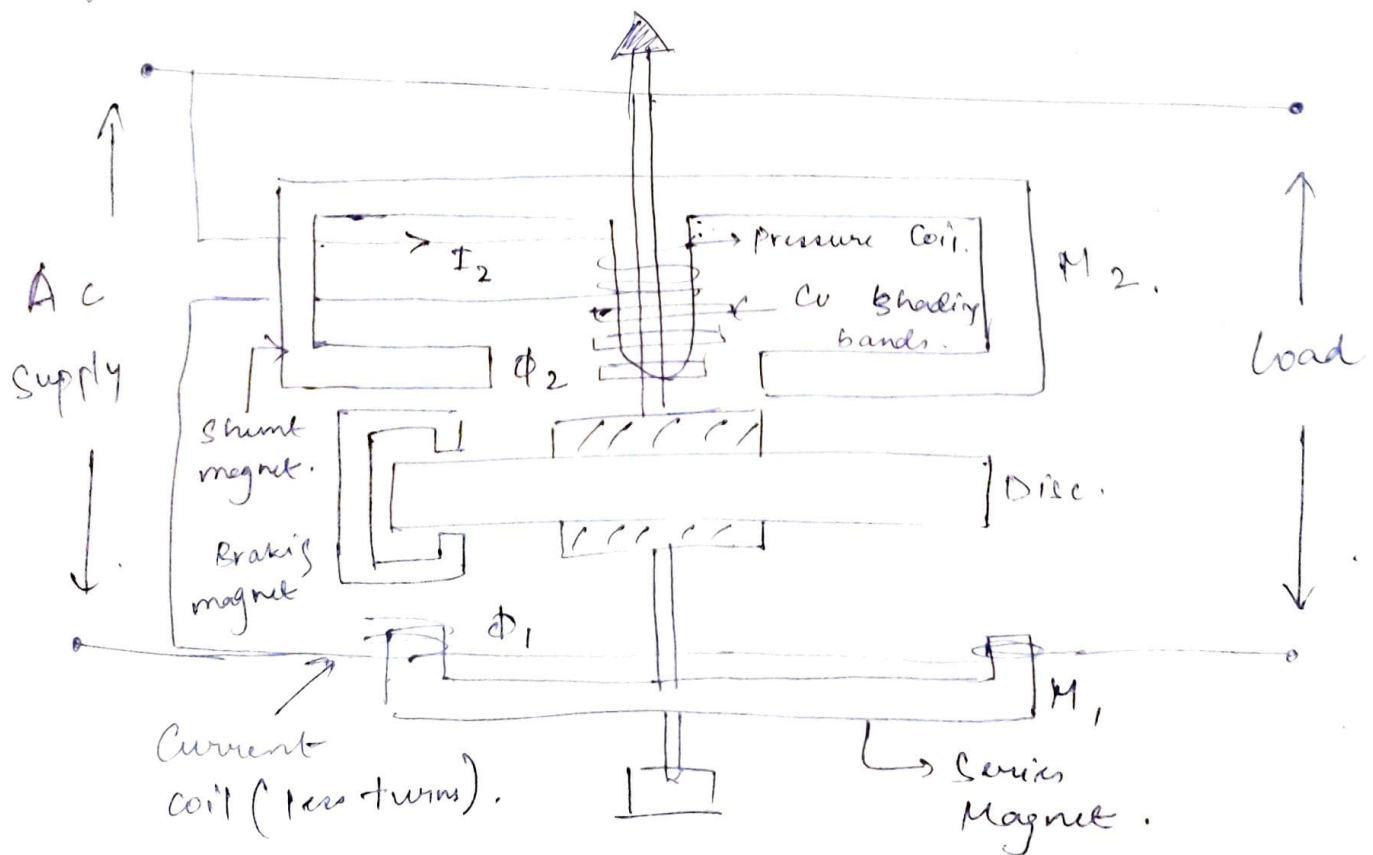 Ac
Supply
I2
pressure Coil.
Cu Shading
bands.
M2.
Load
Φ2
Shunt
magnet.
Disc.
Brakig
magnet
Φ1
M1
Current
coil (less turns).
Series
Magnet.